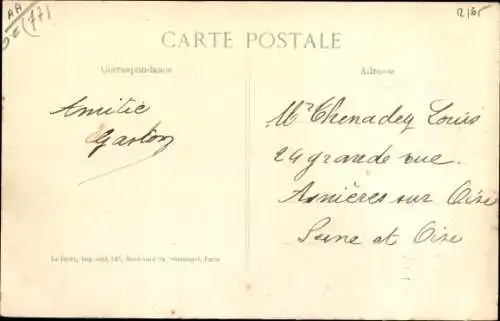 AA
(77)
2/65
CARTE POSTALE
Correspondance
Adresse
Amitié
Gaston
Mr Thenadey Louis
24 grande rue.
Asnières sur Oise
Seine et Oise
Le Deley, Imp.-édit. 127, Boulevard de Sébastopol, Paris